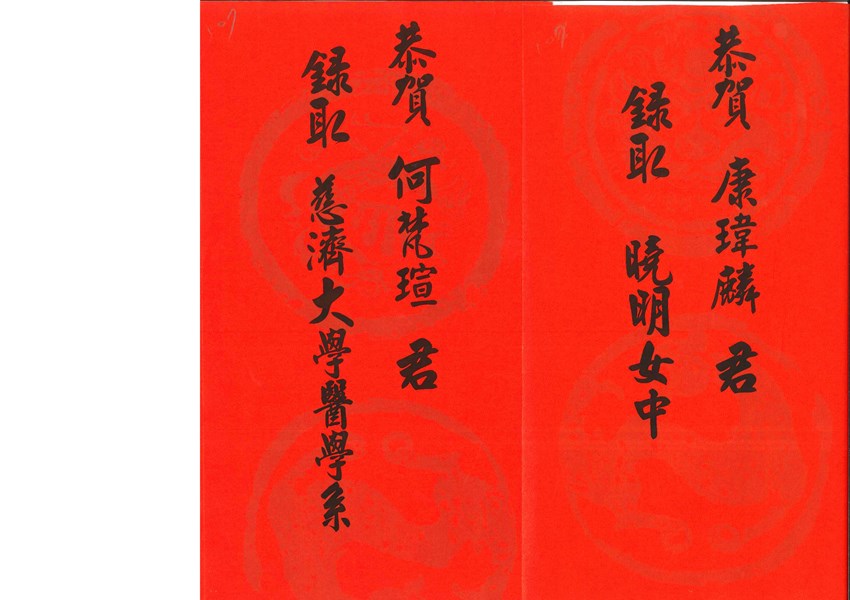 恭賀 康瑋麟 君
錄取 曉明女中
恭賀 何梵瑄 君
錄取 慈濟大學醫學系